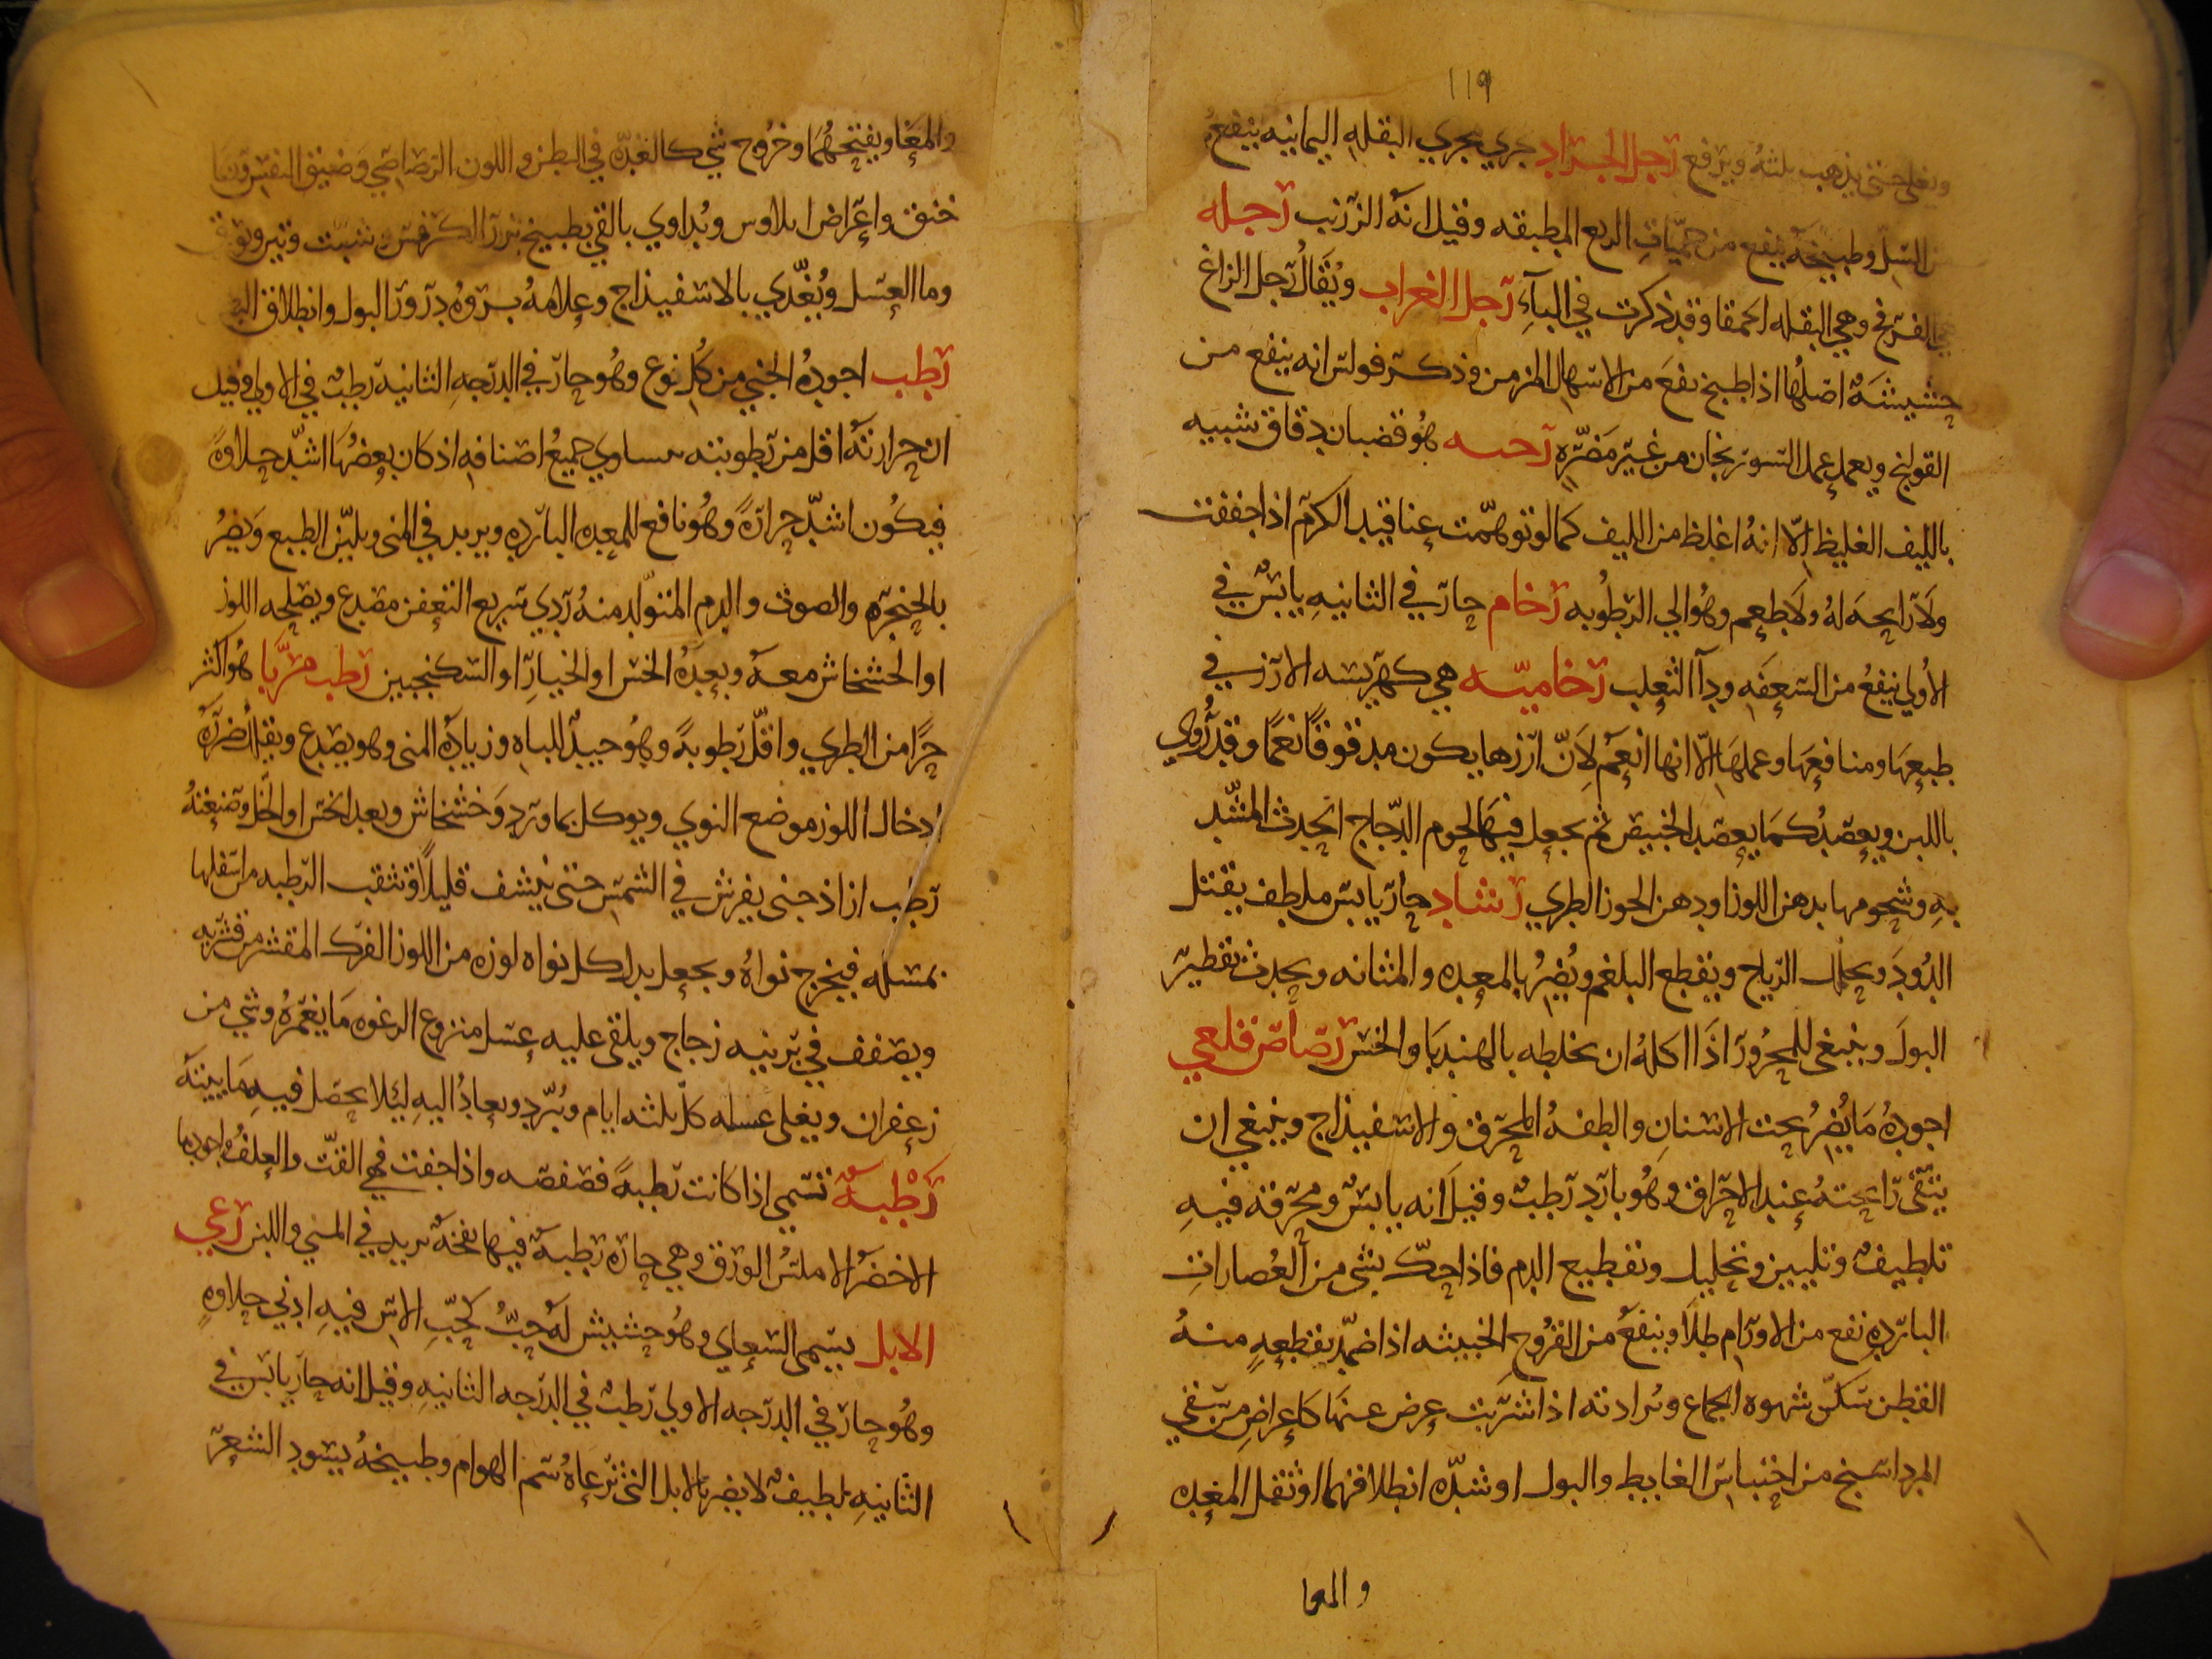 ١١٩
ويغلى حتى يذهب ثلثه ويرفع رجل الجراد يجري مجري البقله اليمانيه ينفع
من السل وطبيخه ينفع من حميات الربع المطبقه وقيل انه الزرنب رجله
هي الفرفخ وهي البقله الحمقا وقد ذكرت في الباء رجل الغراب ويقال رجل الزاغ
حشيشة اصلها اذا طبخ نفع من الاسهال المزمن وذكر فولس انه ينفع من
القولنج ويعمل عمل السورنجان من غير مضره رحسه هو قضبان دقاق شبيه
بالليف الغليظ الا انه اغلظ من الليف كما لو توهمت عناقيد الكرم اذا جففت
ولا رايحة له ولا طعم وهو الي الرطوبه رخام حار في الثانيه يابس في
الاولي ينفع من السعفه ودآ الثعلب رخاميه هي كهريسه الارز في
طبعها ومنافعها وعملها الا انها انعم لان ارزها يكون مدقوقا نعما وقد روي
باللبن ويعصد كما يعصد الخبيص ثم يجعل فيها لحوم الدجاج المشد
به وشحومها بدهن اللوز او دهن الجوز الطري رشاد حار يابس ملطف يقتل
الدود ويحلل الرياح ويقطع البلغم ويضر بالمعده والمثانه ويحدث تقطير
البول وينبغي للمحرور اذا اكله ان يخلطه بالهندبا والخس رصاص قلعي
اجوده ما يضر تحت الاسنان والطفه المحرق والاسفيذاج وينبغي ان
يتقى رايحته عند الاحراق وهو بارد رطب وقيل انه يابس ومحرقه فيه
تلطيف وتليين وتحليل وتقطيع الدم فاذا حك بشي من العصارات
البارده نفع من الاورام طلا وينفع من القروح الخبيثه اذا ضمد بقطعه منه
القطن سكن شهوه الجماع وبرادته اذا شربت عرض عنها كاعراض من سقي
المرداسنج من احتباس الغايط والبول او شده انطلاقهما او ثقل المعده
والمعا
والمعا وينفخهما وخروج شي كالغده في البطن واللون الرصاصي وضيق النفس وربما
خنق واعراض ايلاوس ويداوي بالقي بطبيخ بزر الكرفس وشبت وتين وبورق
وما العسل ويغذي بالاسفيذاج وعلامه بروه درور البول وانطلاق
رطب اجوده الجني من كل نوع وهو حار في الدرجه الثانيه رطب في الاولي وقيل
ان حرارته اقل من رطوبته تساوي جميع اصنافه اذ كان بعضها اشد حلاوة
فيكون اشد حرارة وهو نافع للمعده البارده ويزيد في المني ويلين الطبع ويضر
بالحنجره والصوت والدم المتولد منه ردي سريع التعفن مصدع ويصلحه اللوز
او الخشخاش معه وبعده الخس او الخيار او السكنجبين رطب مربا هو اكثر
حرا من الطري واقل رطوبة وهو جيد للباه وزياده المني وهو يصدع ويقلل ضرره
ادخال اللوز موضع النوي ويوكل بماورد وخشخاش وبعد الخس او الخل وصنعته
رطب ازاذ جنى يفرش في الشمس حتى ينشف قليلا وتثقب الرطبه من اسفلها
بمسله فيخرج نواه ويجعل بدل كل نواه لوزه من اللوز الفرك المقشر من قشريه
ويصفف في برنيه زجاج ويلقى عليه عسل منزوع الرغوه ما يغمره وشي من
زعفران ويغلى عسله كل ثلثه ايام ويبرد ويعاد اليه ليلا يحصل فيه مابيته
رطبة تسمي اذا كانت رطبة فصفصه واذا جفت فهي القت والعلف واجودها
الاخضر الاملس الورق وهي حاره رطبة فيها نفخة تزيد في المني واللبن رعي
الابل يسمى السعاي وهو حشيش له حب كحب الاس فيه ادني حلاوه
وهو حار في الدرجه الاولي رطب في الدرجه الثانيه وقيل انه حار يابس في
الثانيه لطيف لا يضر بالابل التي ترعاه سم الهوام وطبيخه يسود الشعر